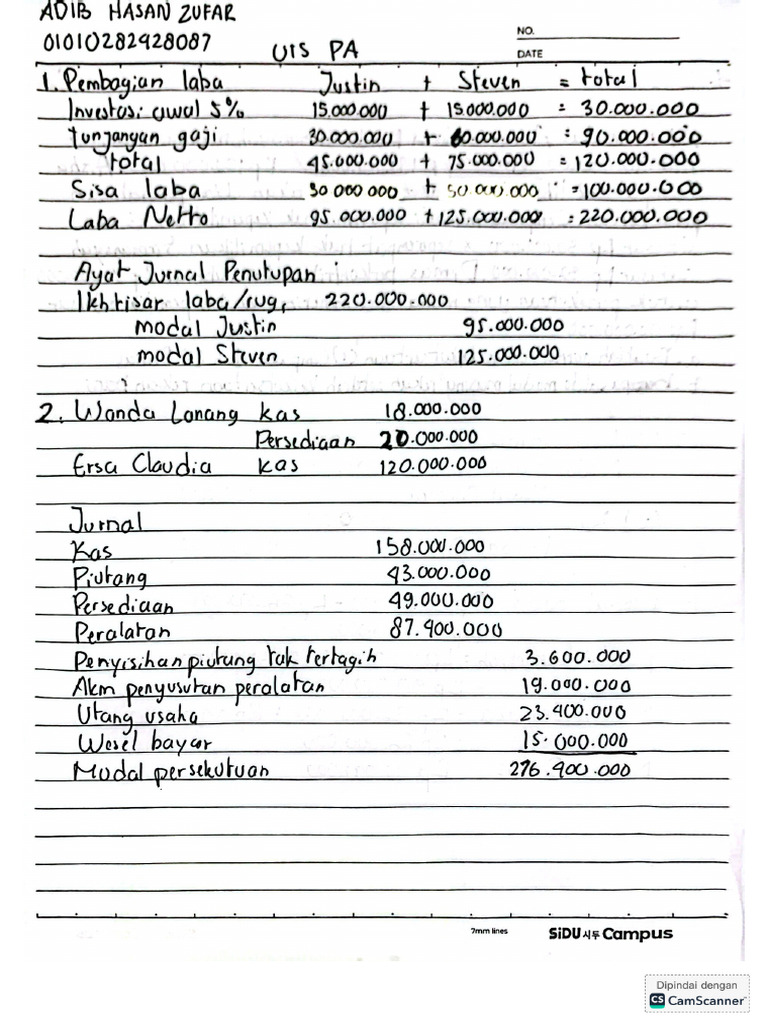 ADIB HASAN ZUFAR
01010282428087
UTS PA
NO.
DATE
1. Pembagian laba Justin + Steven = total
Investasi awal 5% 15.000.000 + 15.000.000 = 30.000.000
tunjangan gaji 30.000.000 + 60.000.000 = 90.000.000
total 45.000.000 + 75.000.000 = 120.000.000
Sisa laba 50 000 000 + 50.000.000 = 100.000.000
Laba Netto 95 000.000 + 125.000.000 = 220.000.000
Ayat Jurnal Penutupan :
Ikhtisar laba/rugi 220.000.000
modal Justin 95.000.000
modal Steven 125.000.000
2. Wanda Lanang kas 18.000.000
Persediaan 20.000.000
Ersa Claudia kas 120.000.000
Jurnal
Kas 158.000.000
Piutang 43.000.000
Persediaan 49.000.000
Peralatan 87.400.000
Penyisihan piutang tak tertagih 3.600.000
Akm penyusutan peralatan 19.000.000
Utang usaha 23.400.000
Wesel bayar 15.000.000
Modal persekutuan 276.400.000
7mm lines
SiDU 시두 Campus
Dipindai dengan
CS CamScanner